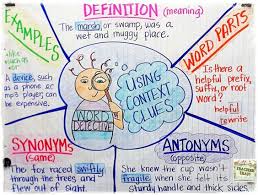 DEFINITION (meaning)
The marsh, or swamp, was a
wet and muggy place.
EXAMPLES
A device, such
as a phone or
mp3 player can
be expensive.
WORD PARTS
Is there a
helpful prefix,
suffix, or root
word?
helpful
rewrite
USING
CONTEXT
CLUES
WORD
DETECTIVE
SYNONYMS
(same)
The toy raced swiftly
through the trees and
flew out of sight.
ANTONYMS
(opposite)
She knew the cup wasn't
fragile when she felt its
sturdy handle and thick sides.